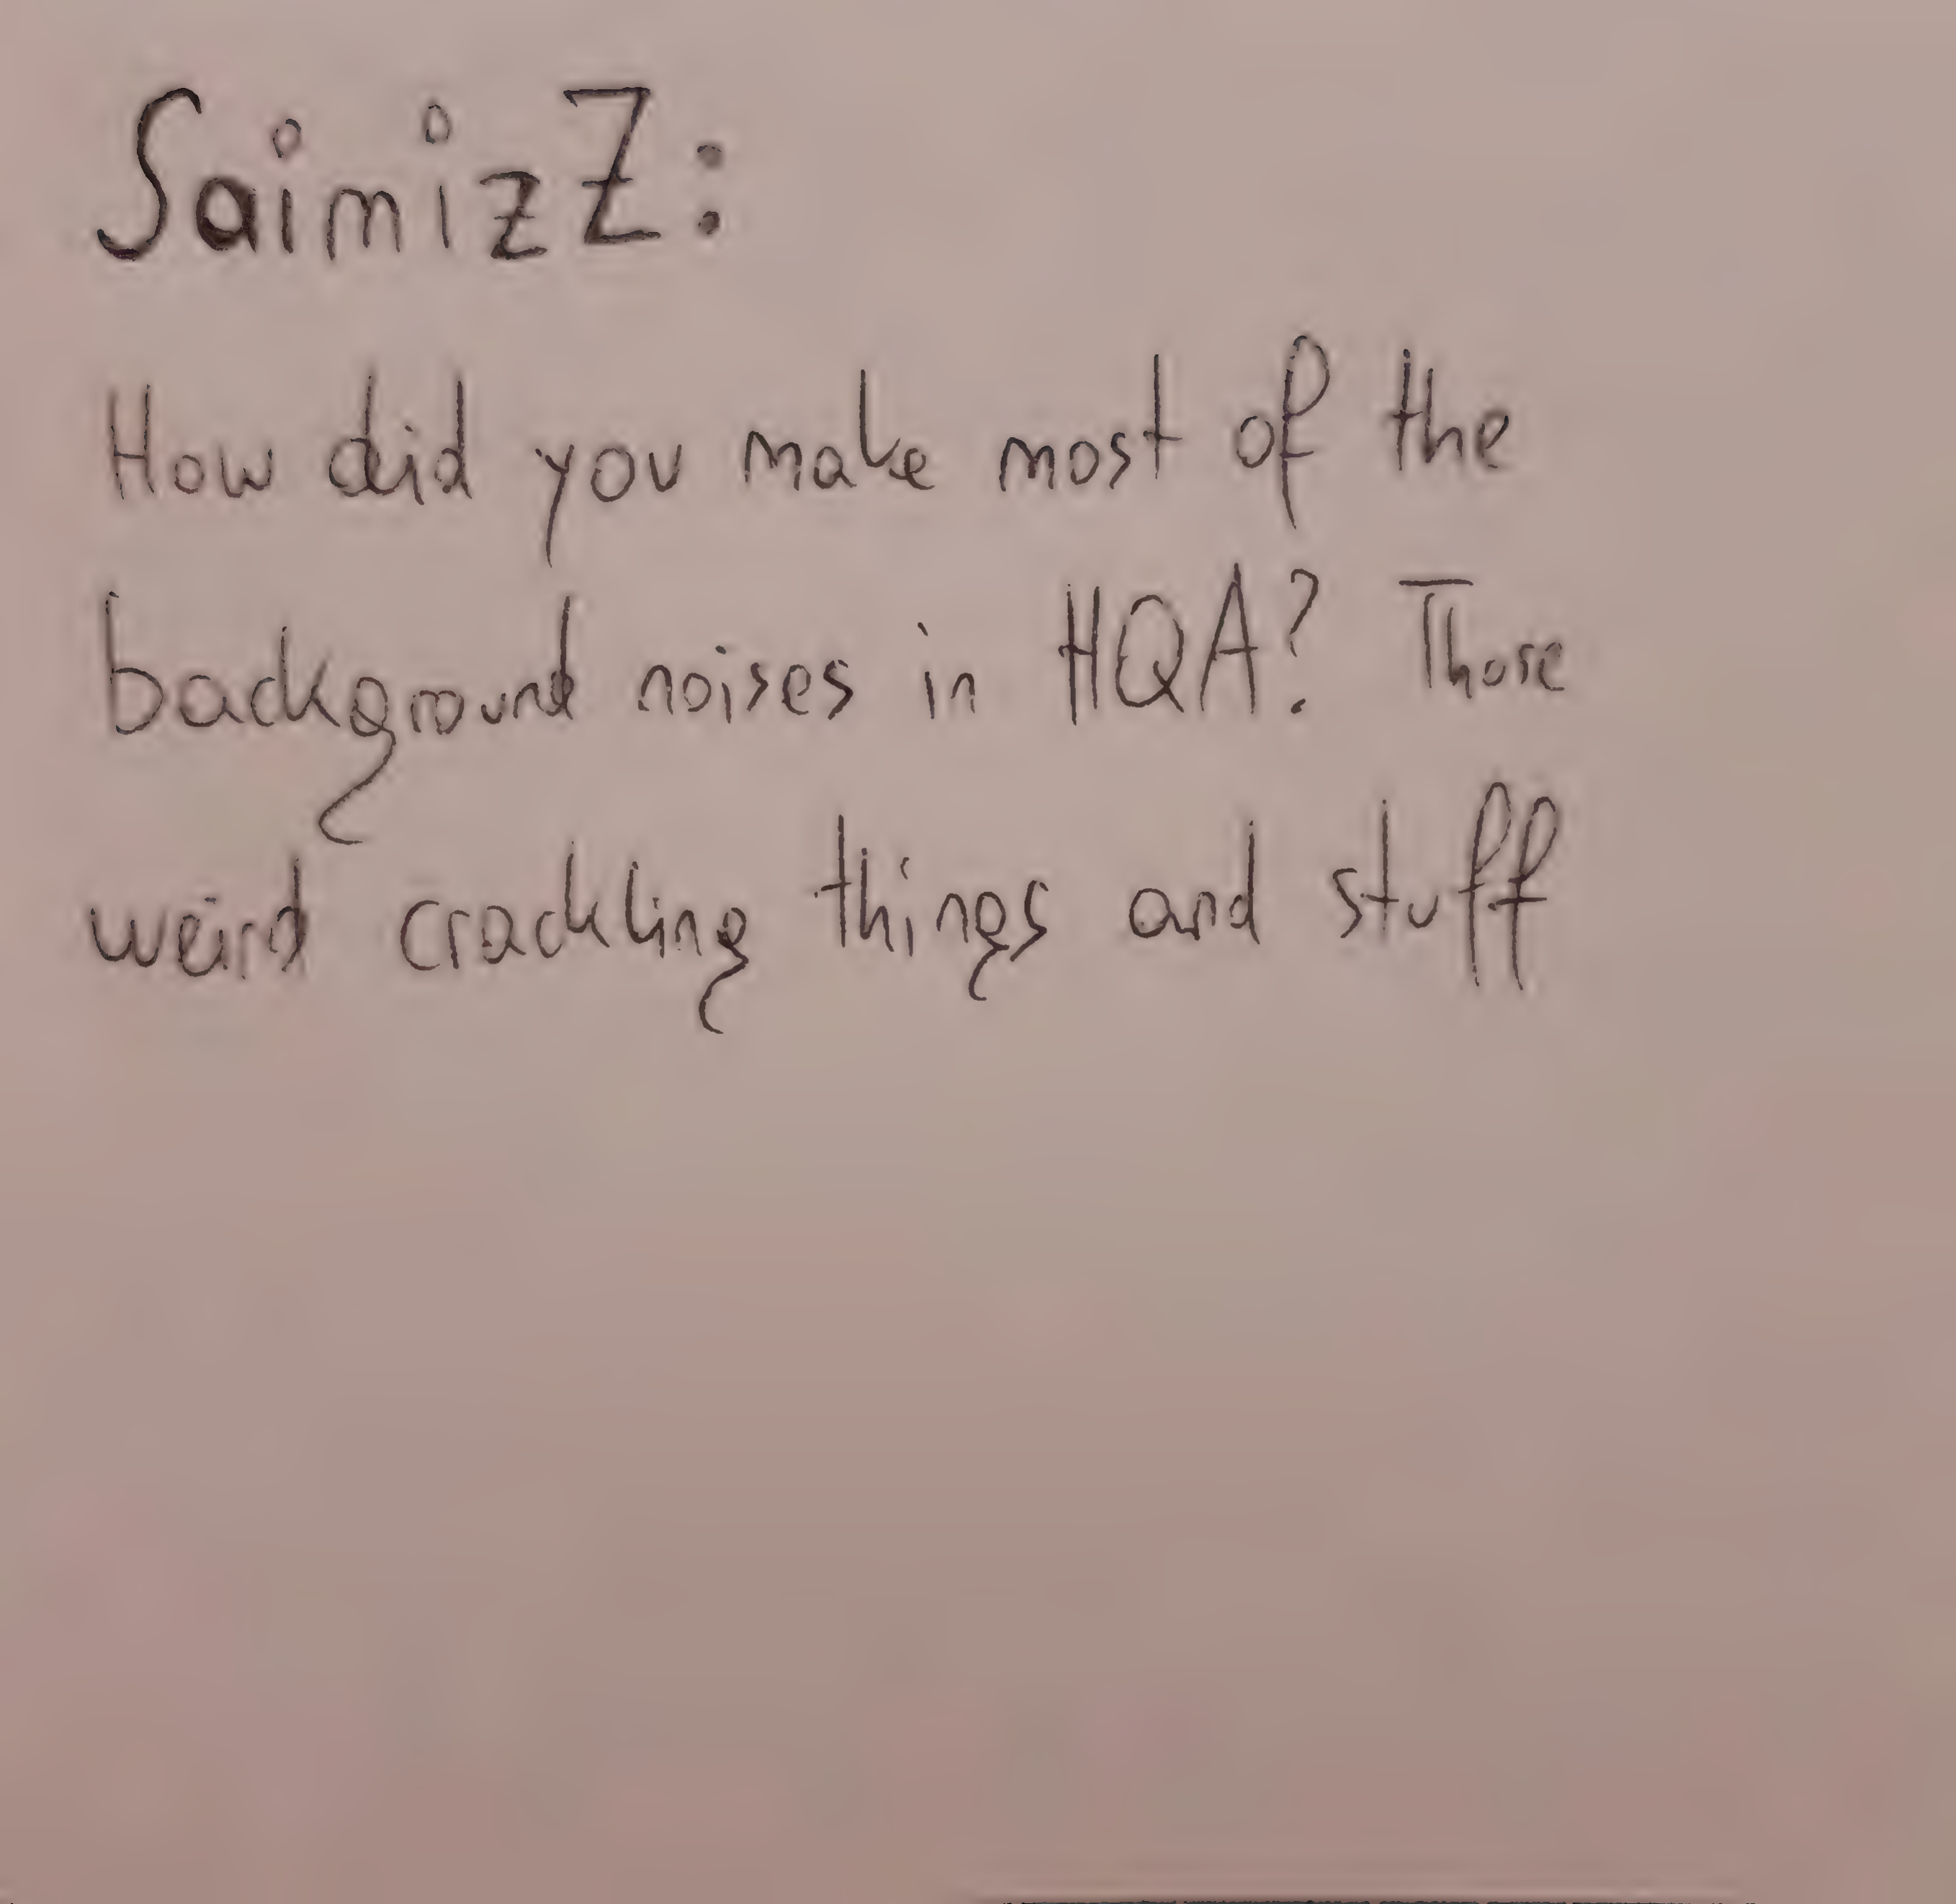 SaimizZ:
How did you make most of the
background noises in HQA? Those
weird crackling things and stuff